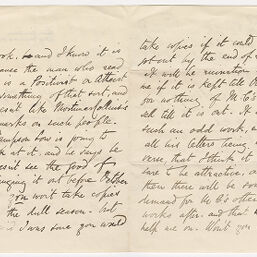 ook, and I know it is
the man who read
is a Positivist or Atheist
something of that sort, and
esn't like Mortimer Collins's
marks on such people.
Sampson Low is going to
k at it, and he says he
esn't see the good of
inging it out before October
you won't take copies
the dull season. But
I was sure you would
take copies if it could
got out by the end of
It will be ruination
me if it is kept till Oct
for nothing of M. C's
sell till it is out. It
such an odd work,
all his letters being
verse, that I think it
sure to be attractive, a
then there will be som
demand for M. C's other
works after, and that
help me on. Won't you